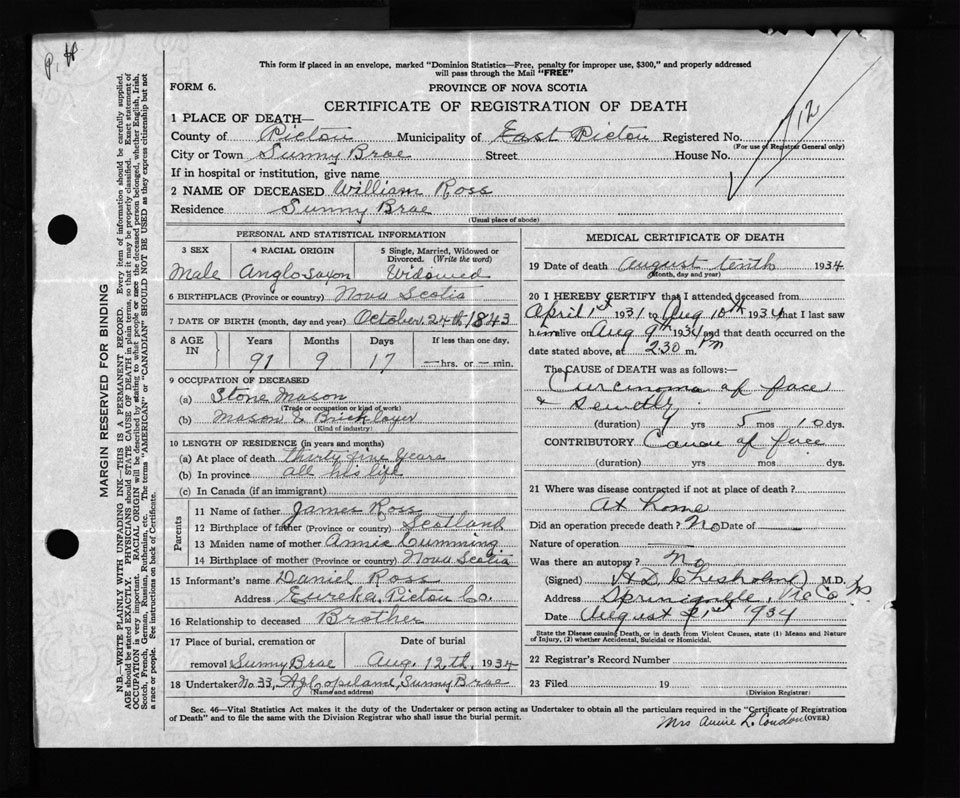 P. H
This form if placed in an envelope, marked "Dominion Statistics—Free, penalty for improper use, $300," and properly addressed
will pass through the Mail "FREE"
FORM 6.
PROVINCE OF NOVA SCOTIA
CERTIFICATE OF REGISTRATION OF DEATH
712
1 PLACE OF DEATH—
County of Pictou Municipality of East Pictou Registered No.
(For use of Registrar General only)
City or Town Sunny Brae Street House No.
If in hospital or institution, give name
2 NAME OF DECEASED William Ross
Residence Sunny Brae
(Usual place of abode)
PERSONAL AND STATISTICAL INFORMATION
3 SEX 4 RACIAL ORIGIN 5 Single, Married, Widowed or Divorced. (Write the word)
Male Anglo Saxon Widowed
6 BIRTHPLACE (Province or country) Nova Scotia
7 DATE OF BIRTH (month, day and year) October 24th 1843
8 AGE IN Years Months Days If less than one day.
91 9 17 — hrs. or — min.
9 OCCUPATION OF DECEASED
(a) Stone Mason
(Trade or occupation or kind of work)
(b) Mason & Bricklayer
(Kind of industry)
10 LENGTH OF RESIDENCE (in years and months)
(a) At place of death thirty five years
(b) In province all his life
(c) In Canada (if an immigrant)
Parents
11 Name of father James Ross
12 Birthplace of father (Province or country) Scotland
13 Maiden name of mother Annie Cumming
14 Birthplace of mother (Province or country) Nova Scotia
15 Informant's name Daniel Ross
Address Eureka, Pictou Co.
16 Relationship to deceased Brother
17 Place of burial, cremation or removal Sunny Brae
Date of burial Aug. 12th, 1934
18 Undertaker No 33, Sunny Brae
(Name and address)
MEDICAL CERTIFICATE OF DEATH
19 Date of death August tenth 1934
(Month, day and year)
20 I HEREBY CERTIFY that I attended deceased from
April 1st 1931 to Aug 10th 1934 that I last saw
him alive on Aug 9th 1934 and that death occurred on the
date stated above, at 2.30 m. Pm
The CAUSE OF DEATH was as follows:—
Carcinoma of face
& Senility
(duration) yrs 5 mos 10 dys.
CONTRIBUTORY Cancer of face
(duration) yrs mos dys.
21 Where was disease contracted if not at place of death?
At home
Did an operation precede death? No Date of —
Nature of operation —
Was there an autopsy? No
(Signed) H D Chisholm M.D.
Address Springville, Pic Co N.S.
Date August 1934
State the Disease causing Death, or in death from Violent Causes, state (1) Means and
Nature of Injury, (2) whether Accidental, Suicidal or Homicidal.
22 Registrar's Record Number
23 Filed 19
(Division Registrar)
Sec. 46—Vital Statistics Act makes it the duty of the Undertaker or person acting as Undertaker to obtain all the particulars required in the "Certificate of Registration
of Death" and to file the same with the Division Registrar who shall issue the burial permit.
(OVER)
Mrs Annie L. Condon
MARGIN RESERVED FOR BINDING
N.B.—WRITE PLAINLY WITH UNFADING INK—THIS IS A PERMANENT RECORD. Every item of information should be carefully supplied.
AGE should be stated EXACTLY. PHYSICIANS should STATE CAUSE OF DEATH in plain terms, so that it may be properly classified. Exact statement of
OCCUPATION is very important. RACIAL ORIGIN will be described by stating to what people or race the deceased person belonged, whether English, Irish,
Scotch, French, German, Russian, Ruthenian, etc. The terms "AMERICAN" or "CANADIAN" SHOULD NOT BE USED as they express citizenship but not
a race or people. See instructions on back of Certificate.